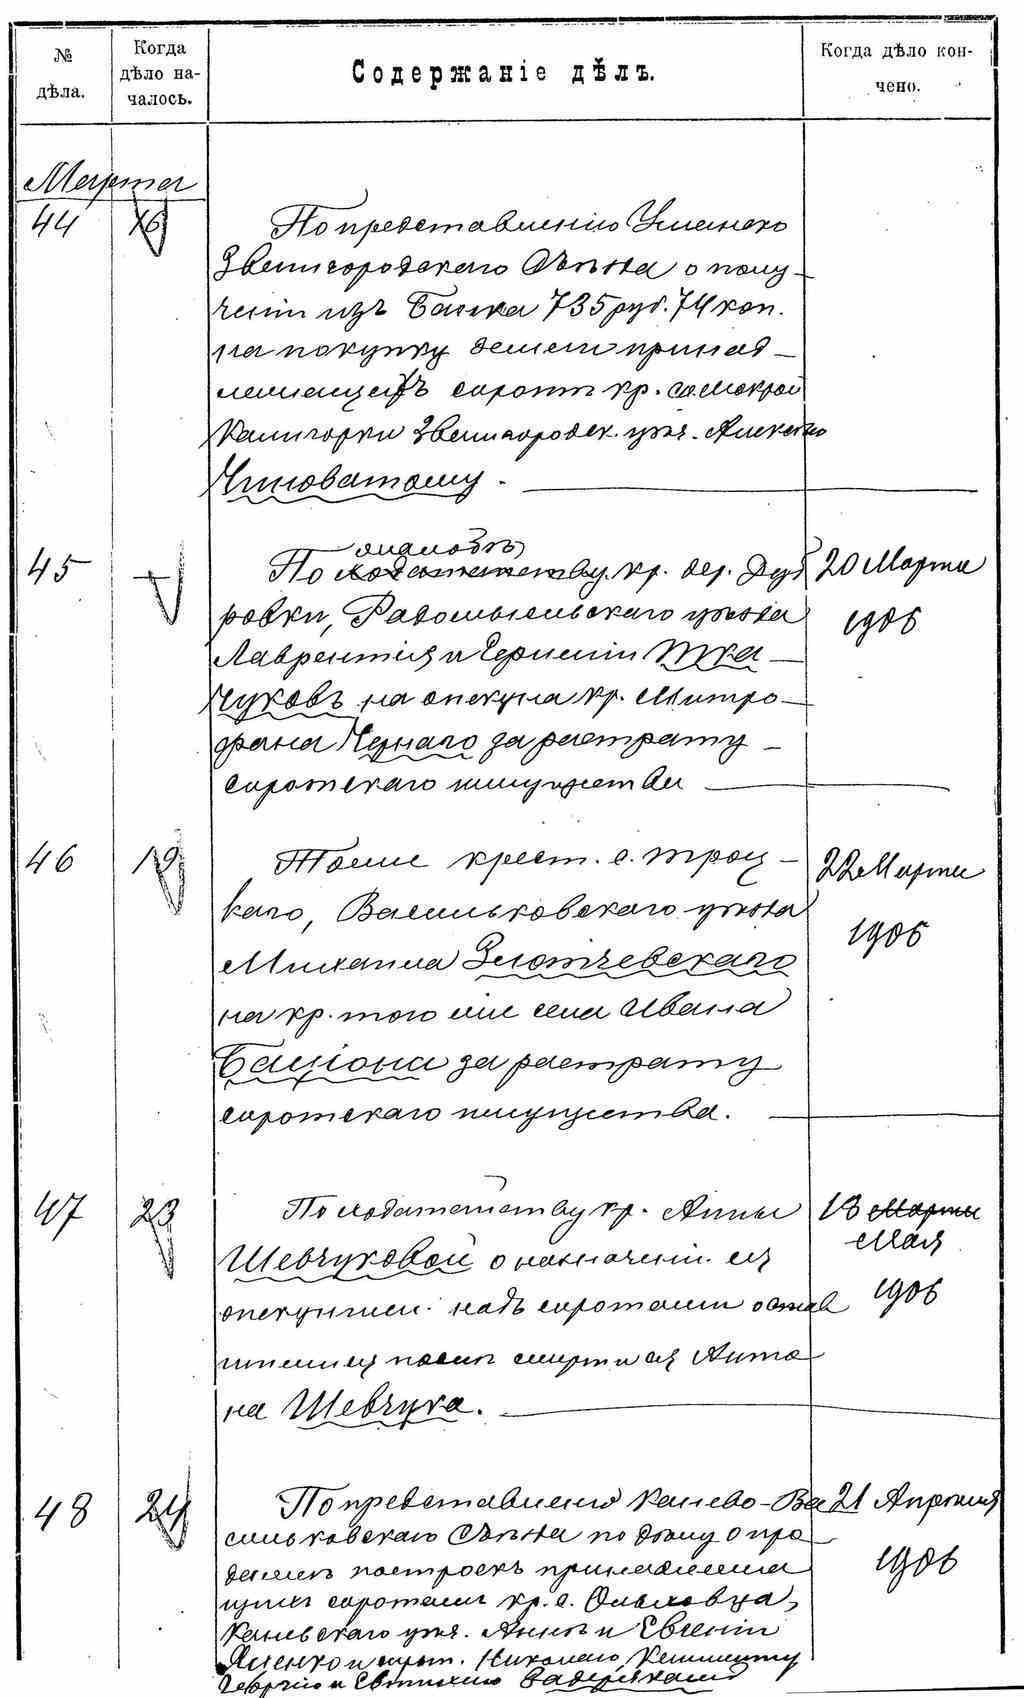 № дѣла.
Когда дѣло началось.
Содержаніе дѣлъ.
Когда дѣло кончено.
Марта
44 16 По представленію Уманско
Звенигородскаго Съѣзда о полу-
ченіи изъ Банка 735 руб. 74 коп.
на покупку земли принад-
лежащихъ сиротѣ кр. с. Мокрой
Калигорки Звенигородск. уѣз. Алексѣю
Чиноватому.
жалобѣ
45 По ходатайству кр. дер. Дуб 20 Марта
ровки, Радомысльскаго уѣзда 1906
Лаврентія и Ксеніи Тка-
чуковъ на опекуна кр. Митро-
фана Чернаго за растрату
сиротскаго имущества
46 19 Тоже крест. с. Троц- 22 Марта
каго, Васильковскаго уѣзда 1906
Михаила Золотчевскаго
на кр. того же села Ивана
за растрату
сиротскаго имущества.
47 23 По ходатайству кр. Анны 18 Марта
Мая
Шевчуковой о назначеніи ея 1906
опекуншей надъ сиротами остав
шимися послѣ смерти ея Анто-
на Шевчука.
48 24 По представленію Канево-Ва 21 Апрѣля
сильковскаго Съѣзда по дѣлу о про 1906
дажѣ построекъ принадлежа
щихъ сиротамъ кр. с. Ольховца,
Каневскаго уѣз. Аннѣ и Евгеніи
Яценко и Николаю, Клименту
Георгію и